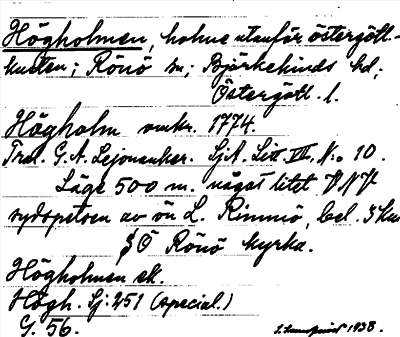 Högholmen, holme utanför östergöt-
kusten; Rönö sn; Björkekinds hd;
Östergötl. l.
Högholm omkr. 1774.
Trol. G.A. Lejonanker. SjA. Litt VII, N:o 10.
Läge 500 m. något litet VNV
sydspetsen av ön L. Rimmö, bel. 3 km
SÖ Rönö kyrka.
Högholmen sk.
Högh. Sj: 251 (special.)
G. 56.
1938.